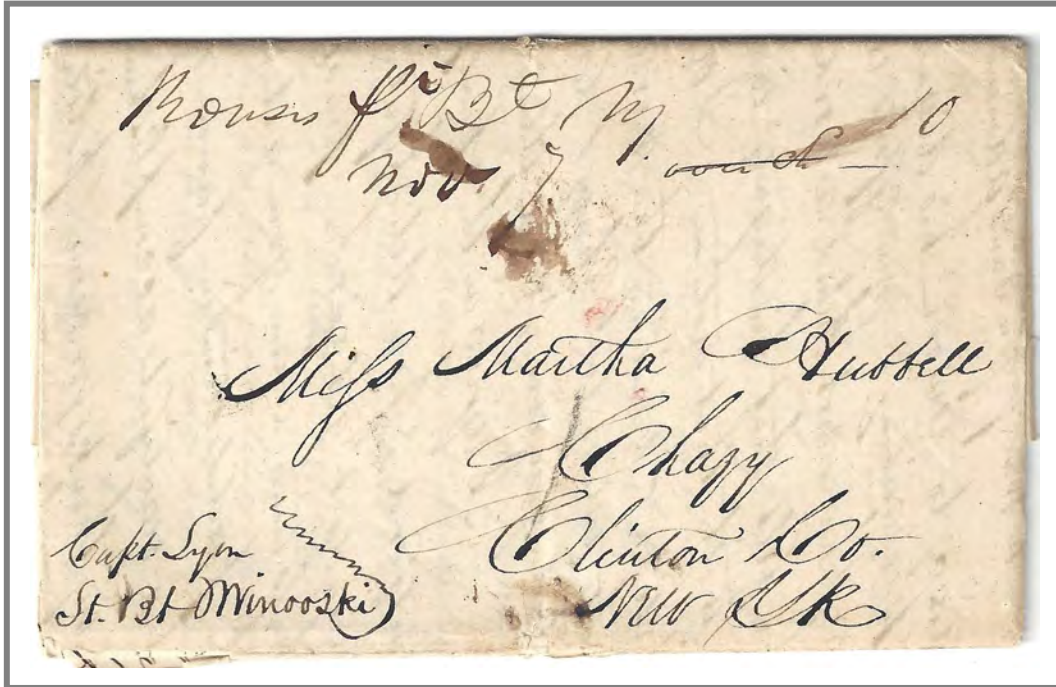 Rouses Pt N.Y. 10
Nov 7
Miss Martha Hubbell
Chazy
Clinton Co.
New York
Capt. Lyon
St. Bt Winooski